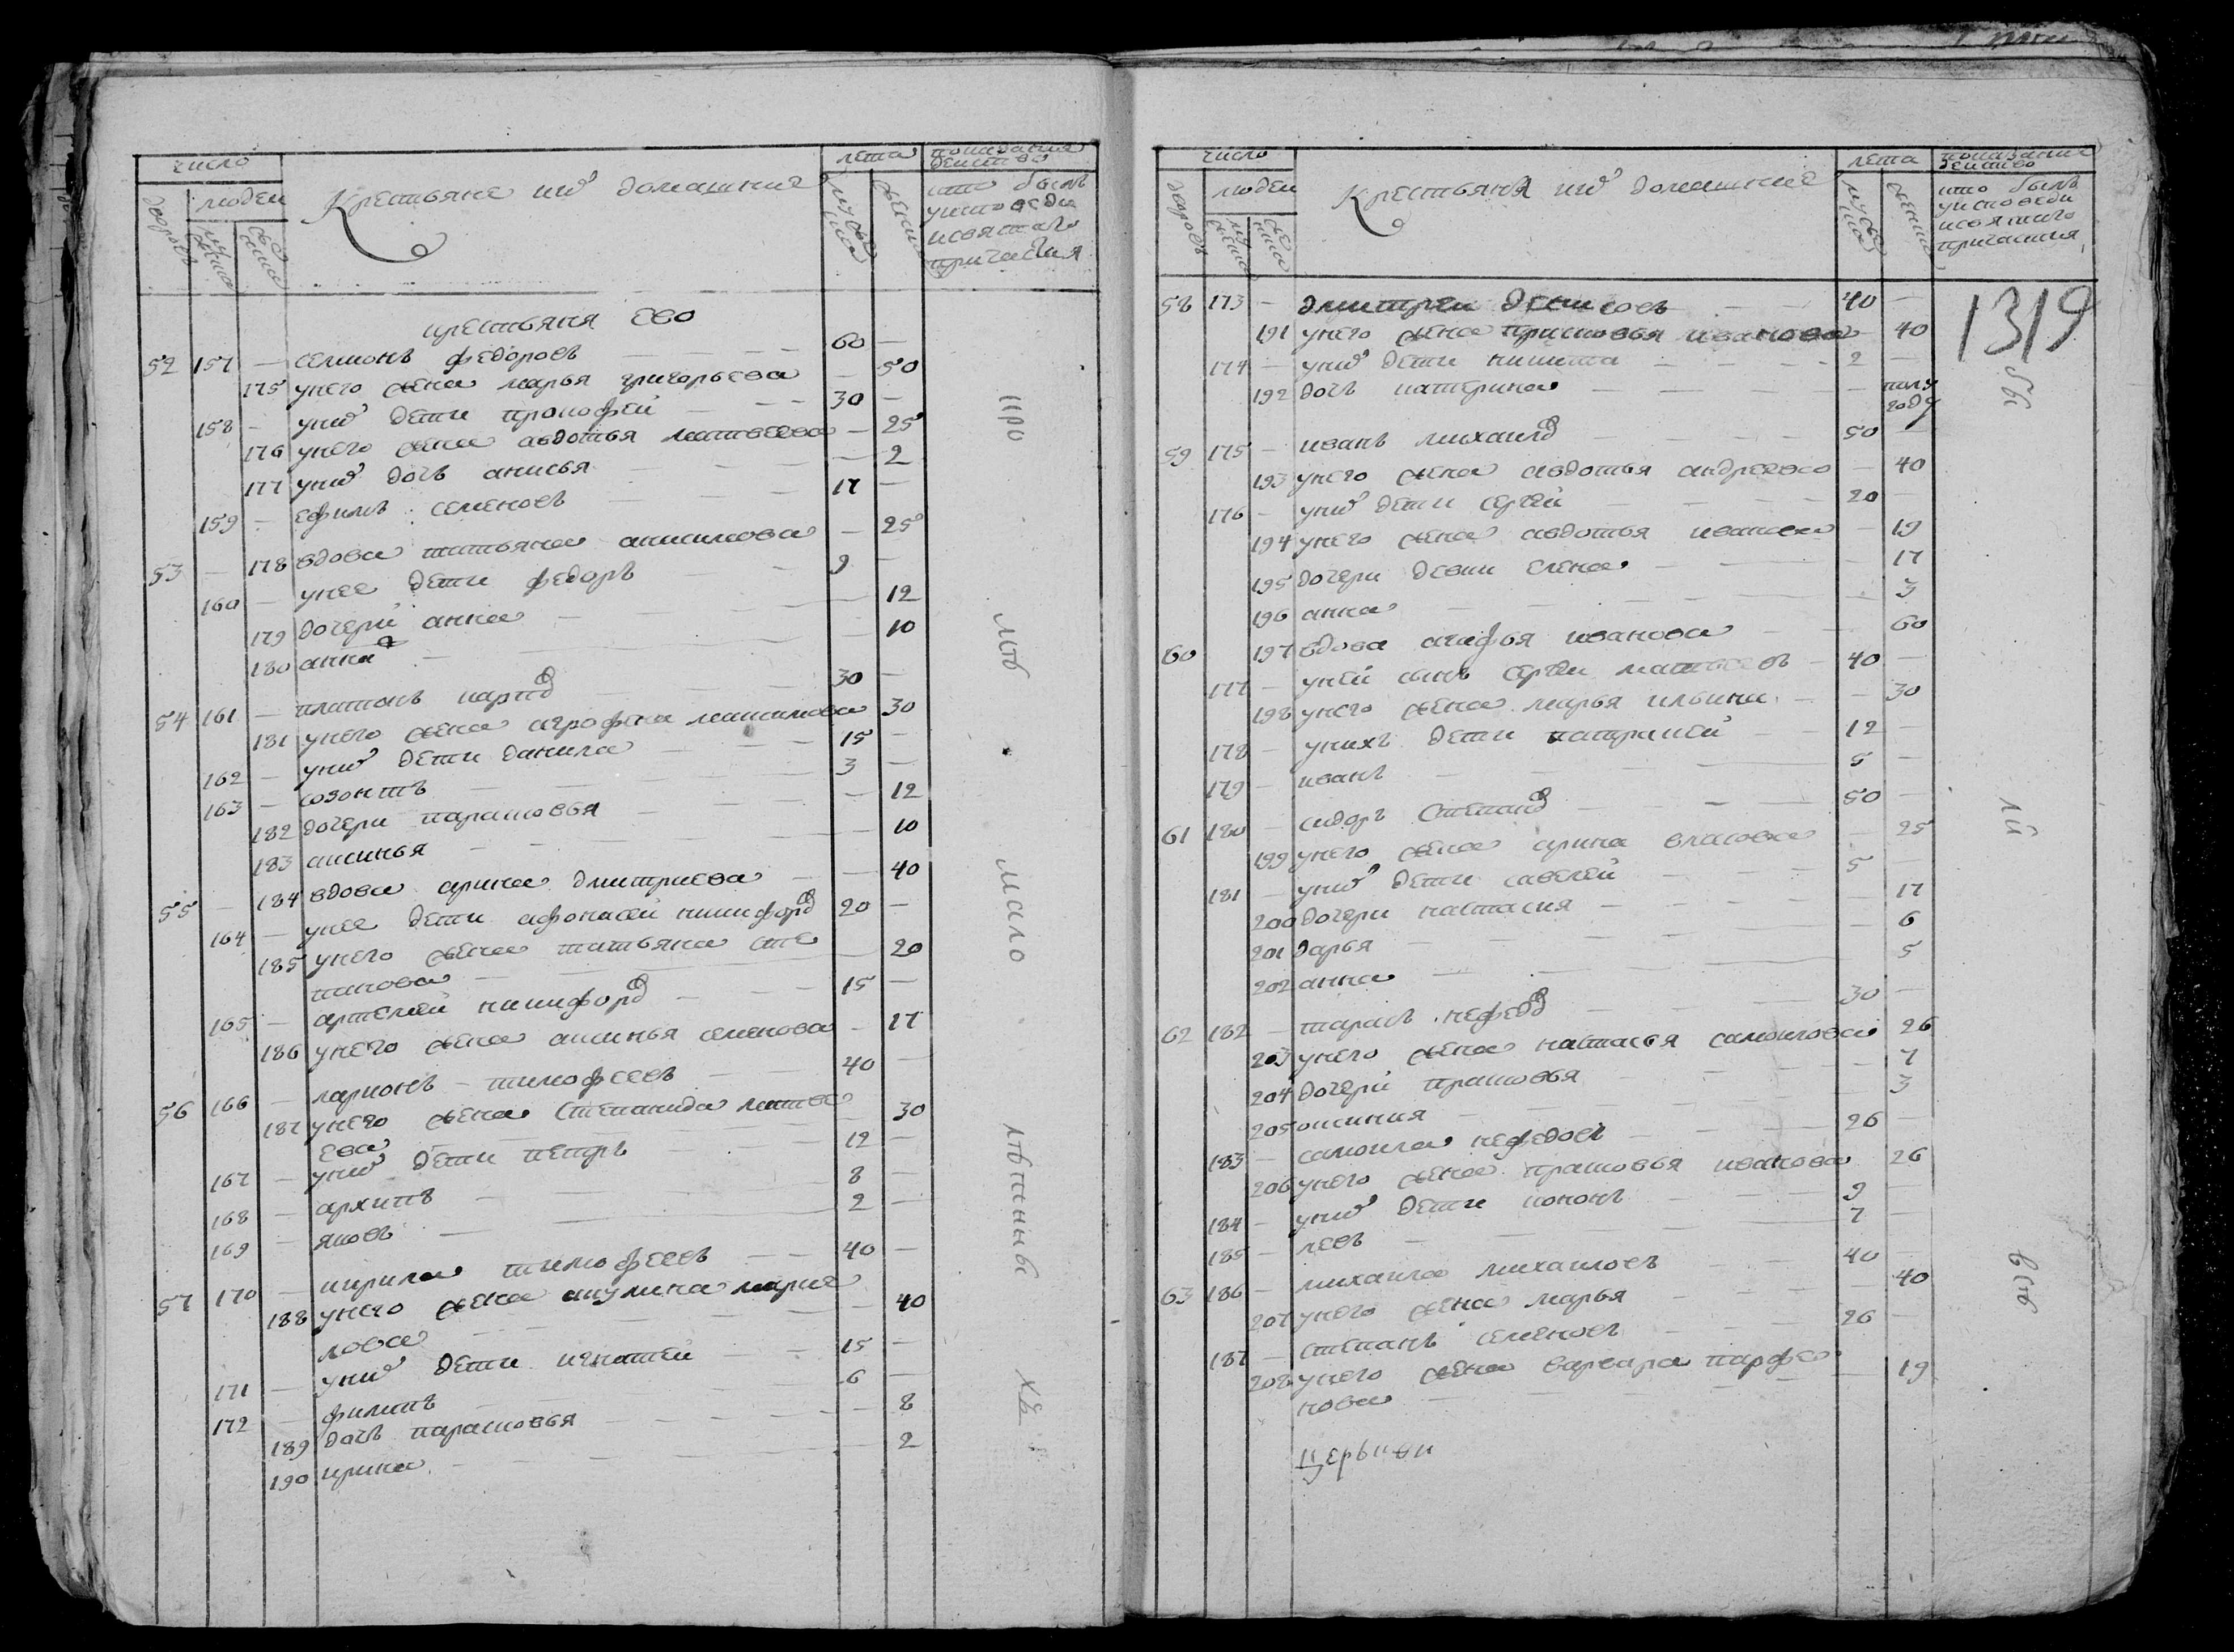 число
людеи
дворовъ
мужеска
женска
Крестьяне ихъ домашние
лета
мужеска
женска
показания действо
кто былъ
уисповеди
исвятаго
причастия
крестьяня ево
52 157 — семионъ федоровъ — 60 —
175 унего жена марья григорьева — 50
158 — унихъ дети прокофей — 30 —
176 унего жена авдотья матвеева — 25
177 унихъ дочь анисья — 2
159 — ефимъ семеновъ 17 —
53 — 178 вдова татьяна анисимова — 25
160 — унее дети федоръ — 9 —
179 дочери анна — 12
180 анна — 10
54 161 — платонъ карпов 30 —
181 унего жена агрофена максимова 30
162 — унихъ дети данила — 15 —
163 — созонтъ — 3 —
182 дочери парасковья — 12
183 аксинья — 10
55 — 184 вдова арина дмитриева — 40
164 — унее дети афонасеи никифоров 20 —
185 унего жена татьяна сте — 20
панова —
165 — артемей никифоров — 15 —
186 унего жена аксинья семенова — 17
56 166 — ларионъ тимофеевъ — 40 —
187 унего жена степанида матве — 30
ева
167 — унихъ дети петръ — 12 —
168 — архипъ — 8 —
169 — яковъ — 2 —
57 170 — кирила тимофеевъ — 40 —
188 унего жена акулина карпе — 40
лова
171 — унихъ дети игнатеи — 15 —
172 — филипъ — 6 —
189 дочь парасковья — 8
190 ирина — 2
мало
число
людеи
дворовъ
мужеска
женска
Крестьяня ихъ домашние
лета
мужеска
женска
показание действо
кто былъ
уисповеди
исвятаго
причастия
1319
58 173 — дмитреи денисовъ — 40 —
191 унего жена прасковья иванова — 40
174 — унихъ дети никита — 2 —
192 дочь катерина — полу
году
59 175 — иванъ михаилов — 50 —
193 унего жена авдотья андреева — 40
176 — унихъ дети сергей — 20 —
194 унего жена авдотья иванова — 19
195 дочери девки елена — 17
196 анна — 3
60 197 вдова агафья иванова — 60
177 — уней сынъ сергеи матвеевъ — 40 —
198 унего жена марья ильина — 30
178 — унихъ дети патрикей — 12 —
179 — иванъ — 5 —
61 180 — сидоръ степанов — 50 —
199 унего жена арина власова — 25
181 — унихъ дети савелей — 5 —
200 дочери настасия — 17
201 дарья — 6
202 анна — 5
62 182 — тарасъ нефедов — 30 —
203 унего жена настасья самоилова 26
204 дочери прасковья — 7
205 оксиния — 3
183 — самоила нефедовъ — 26 —
206 унего жена прасковья иванова 26
184 — унихъ дети кононъ — 9 —
185 — левъ — 7 —
63 186 — михаила михаиловъ — 40 —
207 унего жена марья — 40
187 — степанъ семеновъ — 26 —
208 унего жена варвара парфе — 19
нова —
церькви